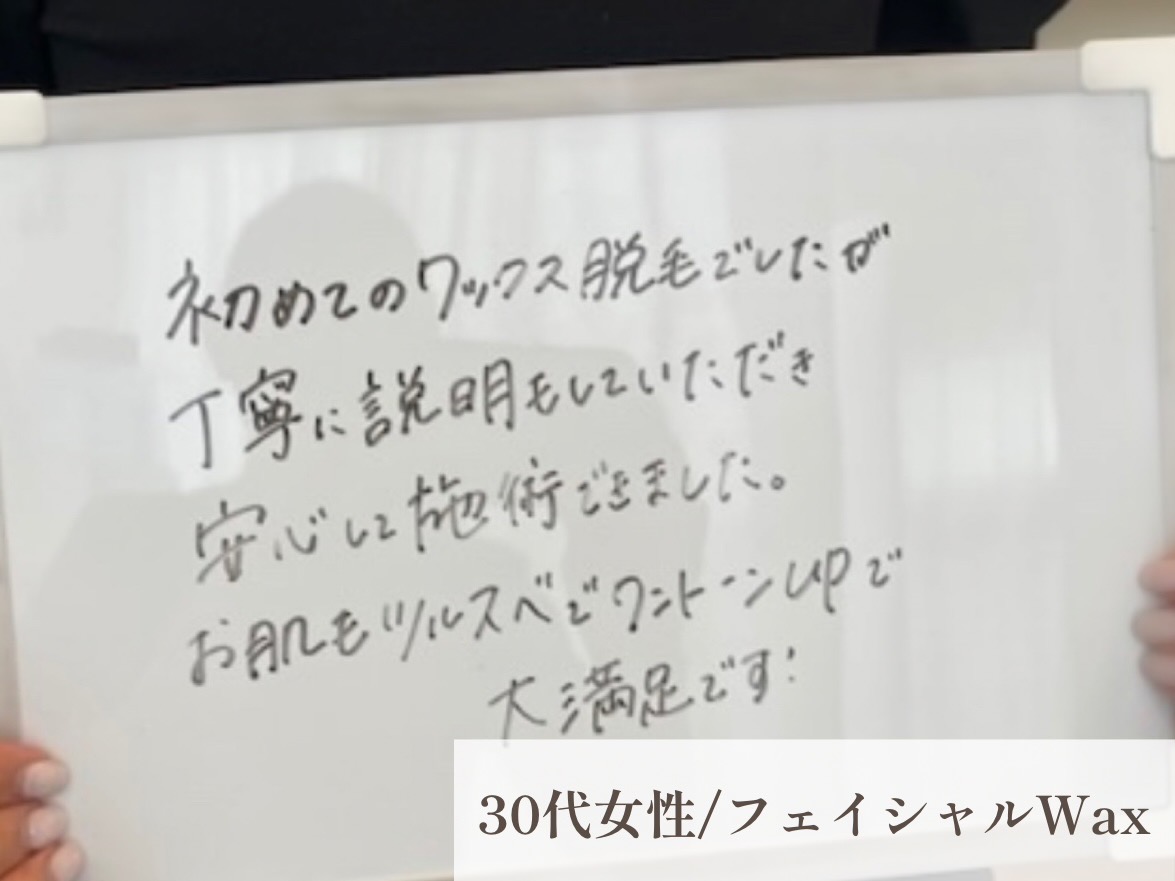 初めてのワックス脱毛でしたが
丁寧に説明もしていただき
安心して施術できました。
お肌もツルスベでワントーンUPで
大満足です!
30代女性/フェイシャルWax